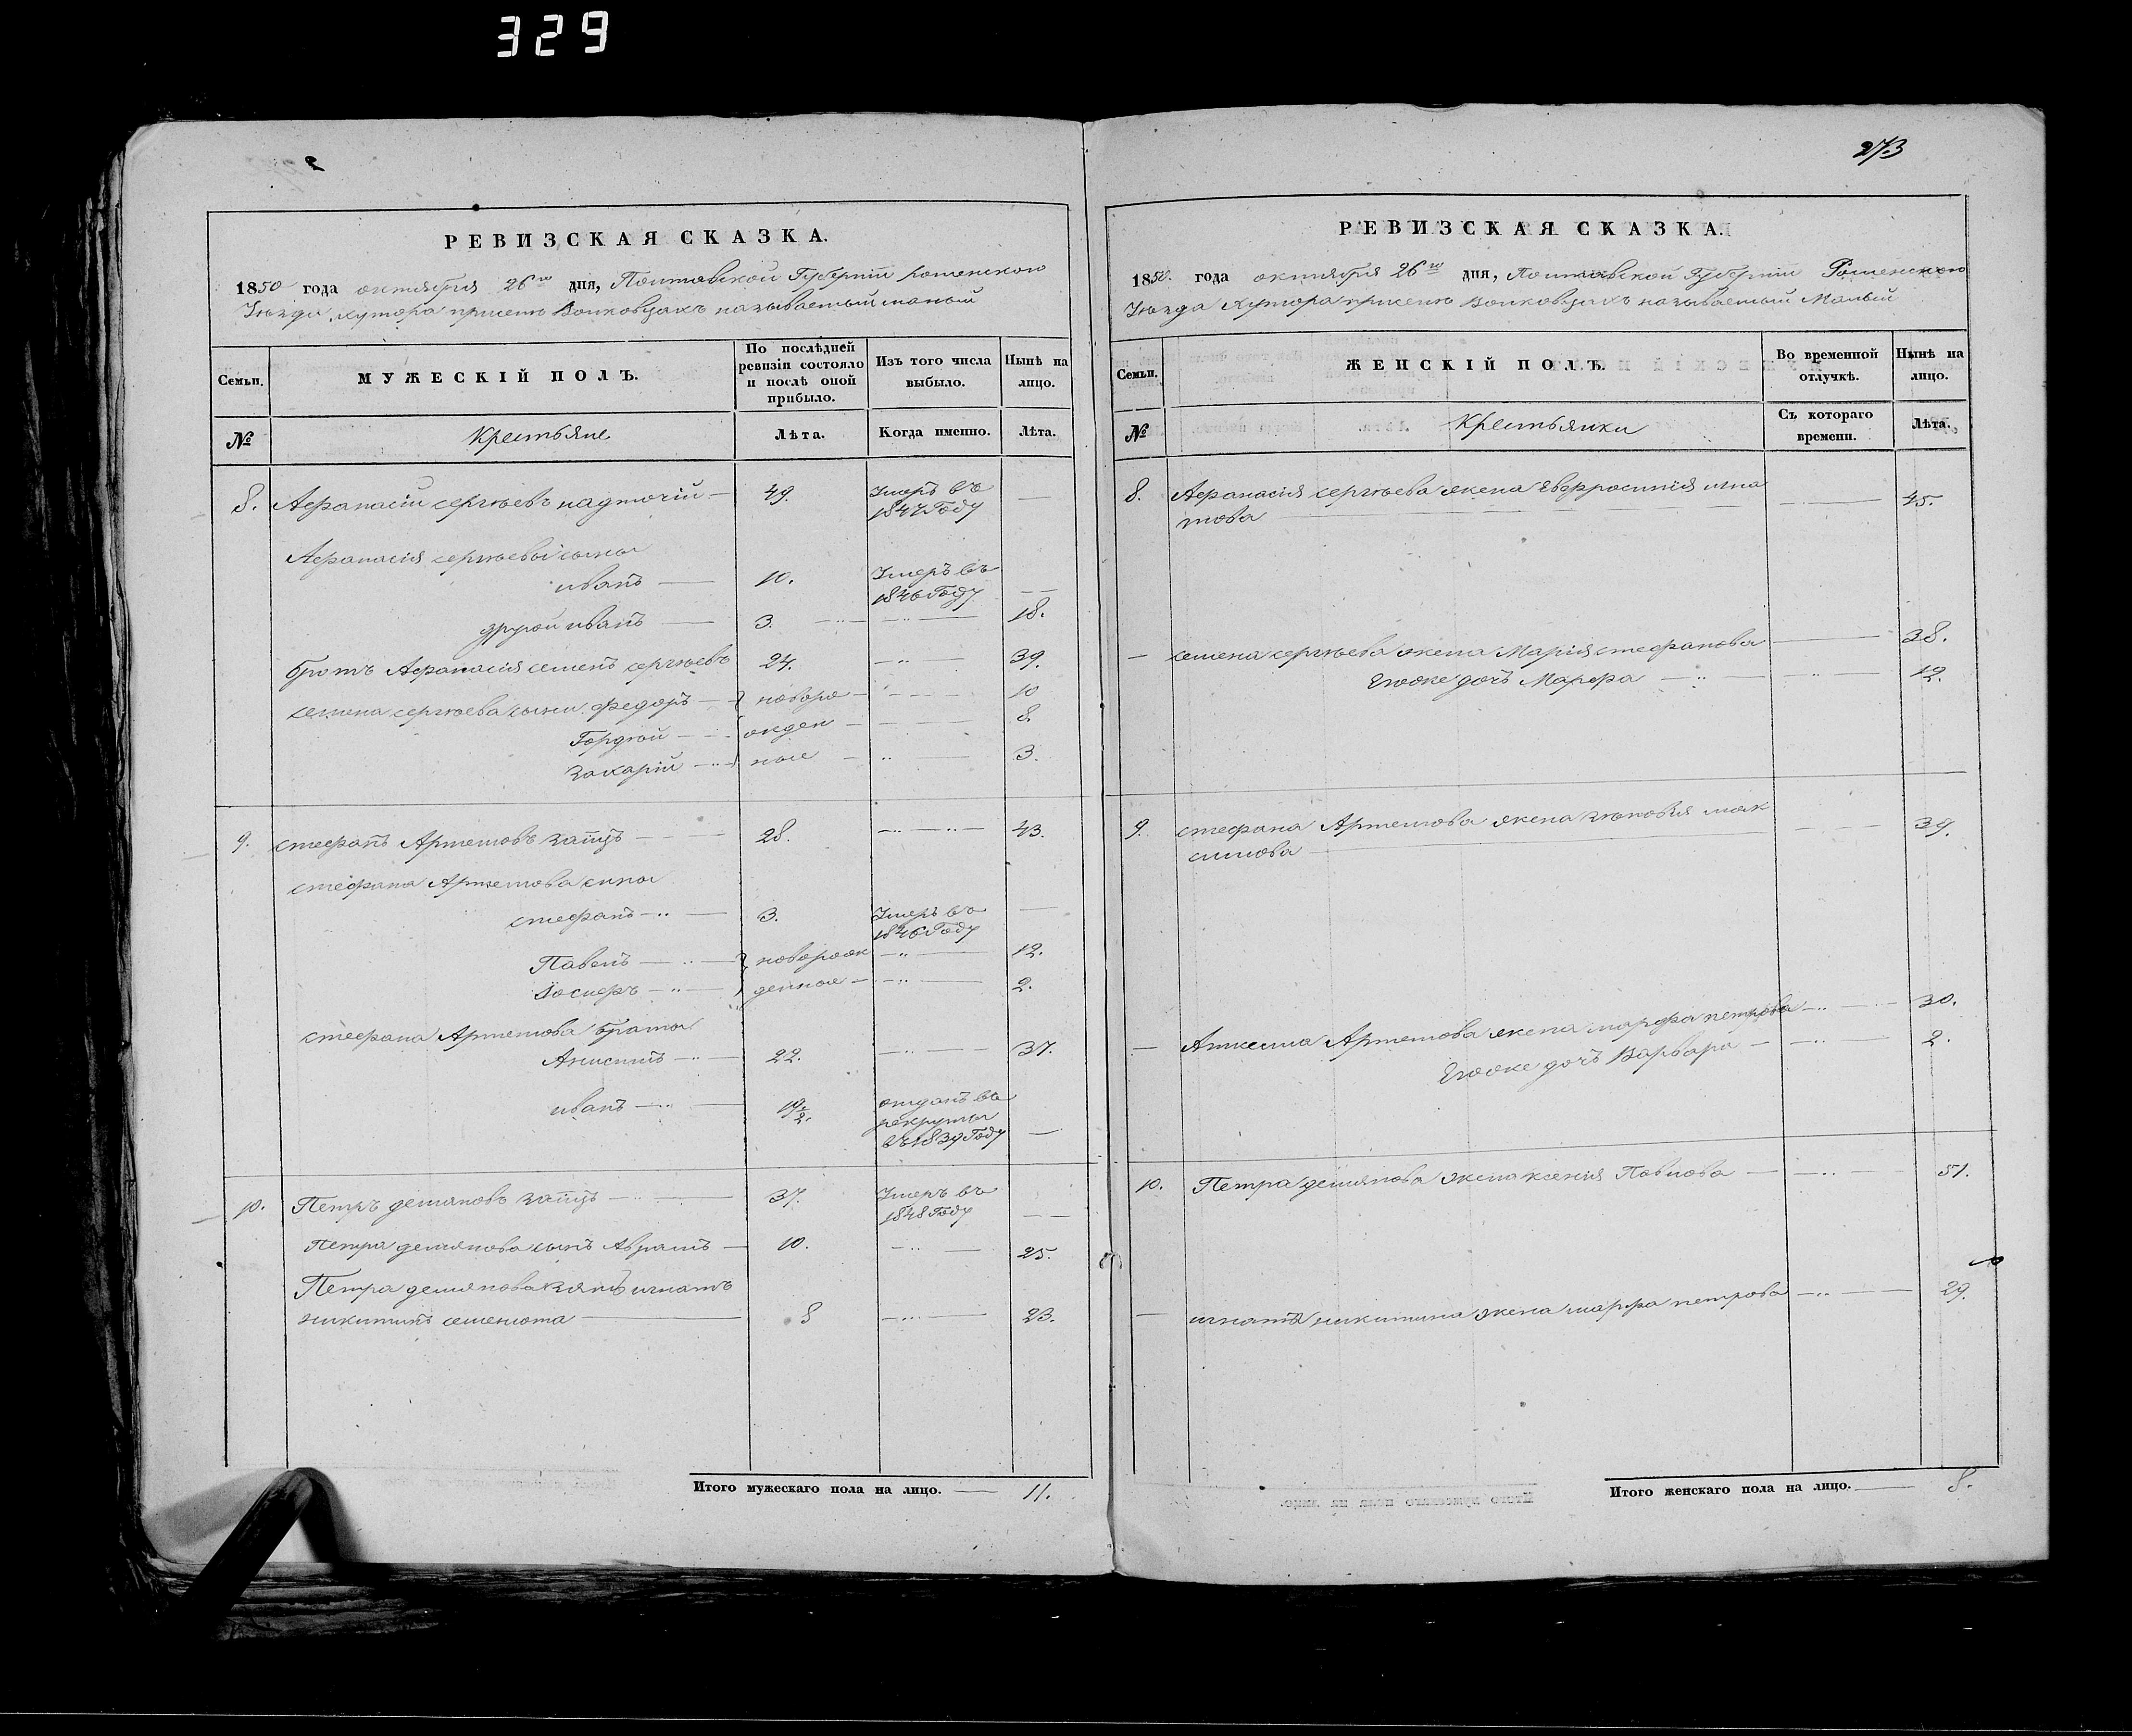 329
2
РЕВИЗСКАЯ СКАЗКА.
1850 года октября 26го дня, Полтавской Губерніи роменского
Уезда, хутора при селе Волковцахъ называемый малый
Семьи.
МУЖЕСКІЙ ПОЛЪ.
По послѣдней ревизіи состояло и послѣ оной прибыло.
Изъ того числа выбыло.
Нынѣ на лицо.
№
Крестьяне
Лѣта.
Когда именно.
Лѣта.
8. Афанасій сергѣевъ надточій — 49. Умеръ въ —
1847 Году
Афанасія сергѣевы сыны
иванъ — 10. Умеръ въ
1846 Году —
другой иванъ — 3. — 18.
братъ Афанасія семенъ сергѣевъ 24. — 39.
семена сергѣева сыны федоръ — новоро — 10
Гордѣй — жден — 8.
Захарій — ные — 3.
9. стефанъ Артемовъ заецъ — 28. — 43.
стефана Артемова сыны
стефанъ — 3. Умеръ въ —
1846 Году
Павелъ — новорож — 12.
денные — 2.
стефана Артемова браты
Анисимъ — 22. — 37.
иванъ — 19½. отданъ въ
рекруты
въ 1839 Году —
10. Петръ демяновъ заецъ — 37. Умеръ въ
1848 Году —
Петра демянова сынъ Аврамъ — 10. — 25.
Петра демянова зять игнатъ
никитинъ семенюта — 8 — 23.
Итого мужескаго пола на лицо. — 11.
273
РЕВИЗСКАЯ СКАЗКА.
1850. года октября 26го дня, Полтавской Губерніи Роменского
Уезда Хутора при селе Волковцахъ называемый Малый
Семьи.
ЖЕНСКІЙ ПОЛЪ.
Во временной отлучкѣ.
Нынѣ на лицо.
№
Крестьянки
Съ котораго времени.
Лѣта.
8. Афанасія сергѣева жена Евфросинія игна — 45.
това
— семена сергѣева жена Марія стефанова — 38.
Егоже дочь Марфа — 12.
9. стефана Артемова жена зѣновія мак — 39.
симова
— Анисима Артемова жена марфа петрова — 30.
Егоже дочь Варвара — 2.
10. Петра демянова жена ксенія Павлова — 51.
— игната никитина жена марфа петрова — 29.
Итого женскаго пола на лицо. — 8.